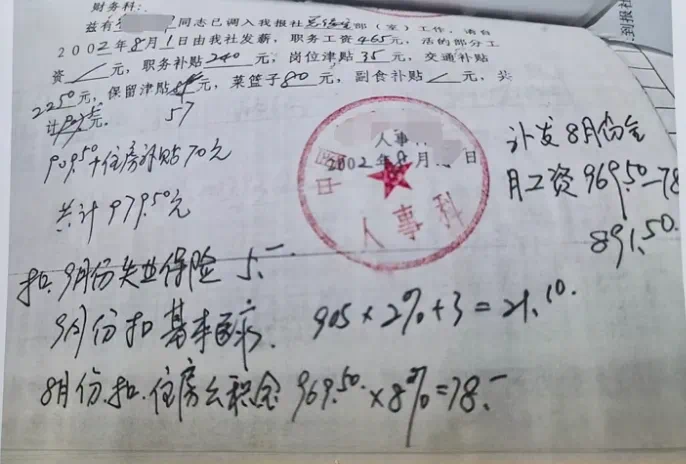 财务科:
兹有 同志已调入我报社 部(室)工作,请自
2002年8月1日由我社发薪,职务工资465元,活的部分工
资/元,职务补贴240元,岗位津贴35元,交通补贴
22.50元,保留津贴 元,菜篮子80元,副食补贴/元,共
57
计 元.
909.50+住房补贴70元
共计979.50元
人事
2002年8月 日
人事科
补发8月份全
月工资969.50-78
891.50.
扣.9月份失业保险 5.-
9月份扣基本医疗. 905×2%+3=21.10.
8月份.扣.住房公积金969.50.×8%=78.-
到报社